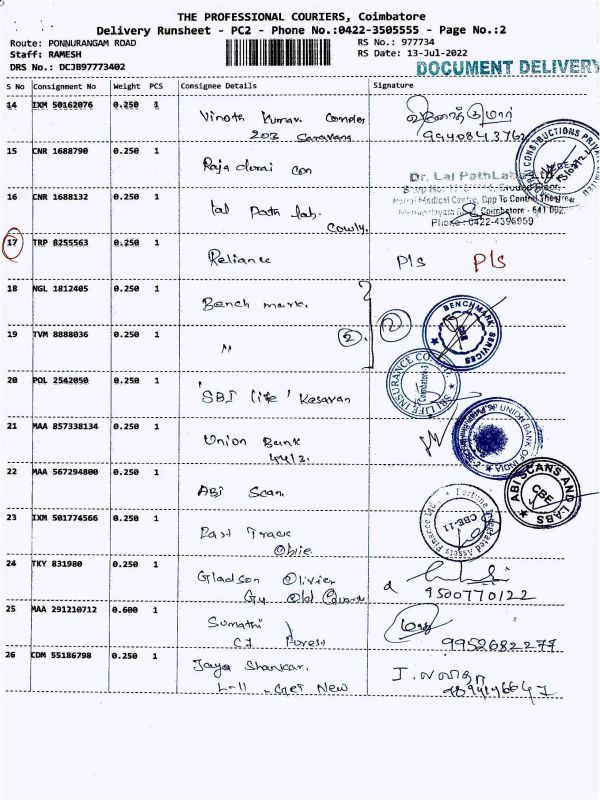 THE PROFESSIONAL COURIERS, Coimbatore
Delivery Runsheet - PC2 - Phone No.:0422-3505555 - Page No.:2
Route: PONNURANGAM ROAD
Staff: RAMESH
DRS No.: DCJB97773402
RS No.: 977734
RS Date: 13-Jul-2022
DOCUMENT DELIVERY
S No Consignment No Weight PCS Consignee Details Signature
14 IXM 50162076 0.250 1 Vinoth Kumar Complex வினோத்குமார்
203 Saravana 9940843762
15 CNR 1688790 0.250 1 Raja dorai con
CONSTRUCTIONS PRIVATE LIMITED
16 CNR 1688132 0.250 1 lal path lab. Dr. Lal PathLabs Ltd
Cowly. Medical Centre, Opp To Central Theatre
Coimbatore - 641 002.
Phone: 0422-4396959
17 TRP 8255563 0.250 1 Reliance P/s P/s
18 NGL 1812405 0.250 1 Bench mark.
BENCHMARK SERVICES
19 TVM 8888036 0.250 1 " 2 2
20 POL 2542050 0.250 1 'SBI life' Kesavan
SBI LIFE INSURANCE CO Coimbatore-3
21 MAA 857338134 0.250 1 Union Bank
UNION BANK OF INDIA
22 MAA 567294800 0.250 1 ABI Scan
ABI SCANS AND LABS CBE
23 IXM 501774566 0.250 1 Fast Track
Obie
Fortune Integrated Assets Finance CBE-11
24 TKY 831980 0.250 1 Gladson Olivier
Old Quars 9500770122
25 MAA 291210712 0.600 1 Sumathi
CJ Forest 9952682277
26 CDM 55186798 0.250 1 Jaya Shankar.
L-11 New